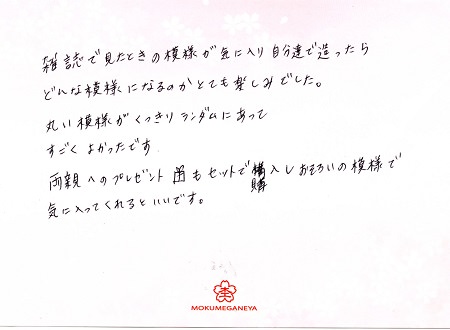 雑誌で見たときの模様が気に入り自分達で造ったら
どんな模様になるのかとても楽しみでした。
丸い模様がくっきりランダムにあって
すごくよかったです
両親へのプレゼント用もセットで購入しおそろいの模様で
気に入ってくれるといいです。
MOKUMEGANEYA